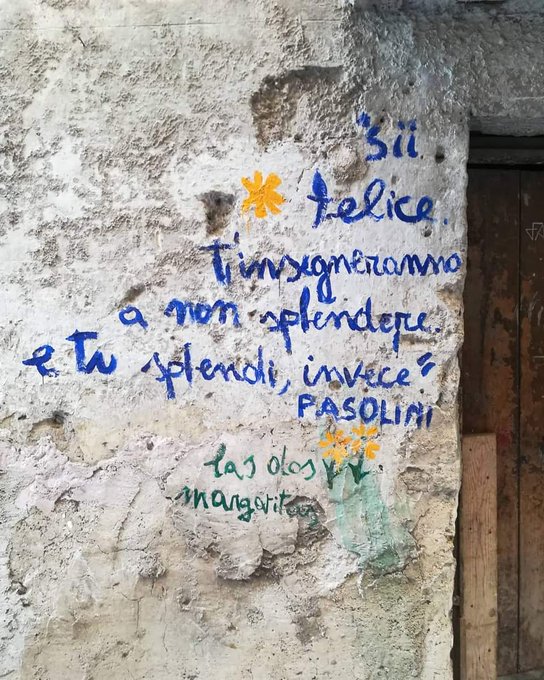 "Sii
felice.
t'insegneranno
a non splendere.
e tu splendi, invece"
PASOLINI
las dos
margaritas